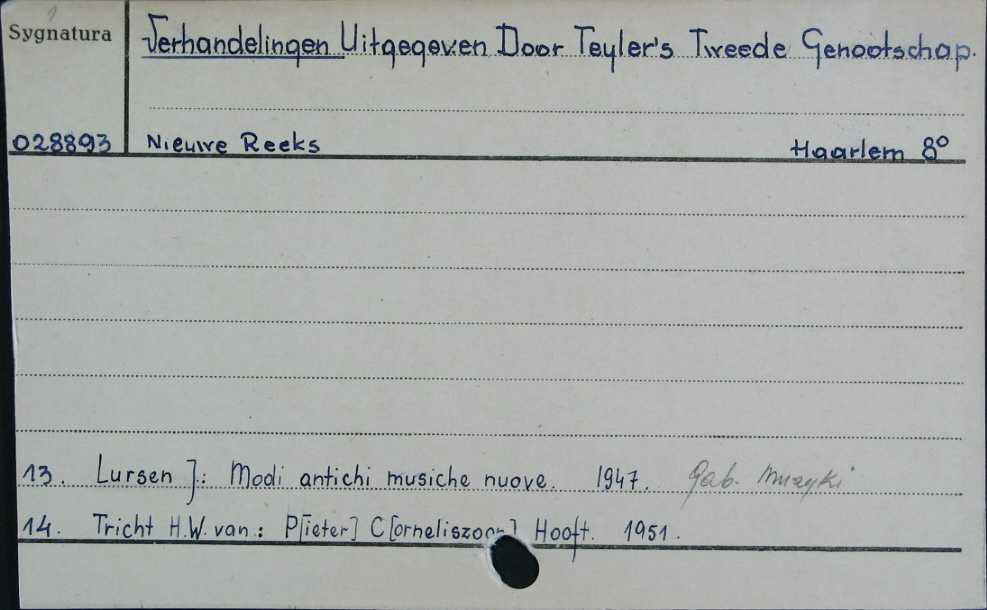 Sygnatura
Verhandelingen Uitgegeven Door Teyler's Tweede Genootschap.
028893
Nieuwe Reeks Haarlem 8°
13. Lursen J.: Modi antichi musiche nuove. 1947. Gab. Muzyki
14. Tricht H.W. van.: P[ieter] C[orneliszoon] Hooft. 1951.